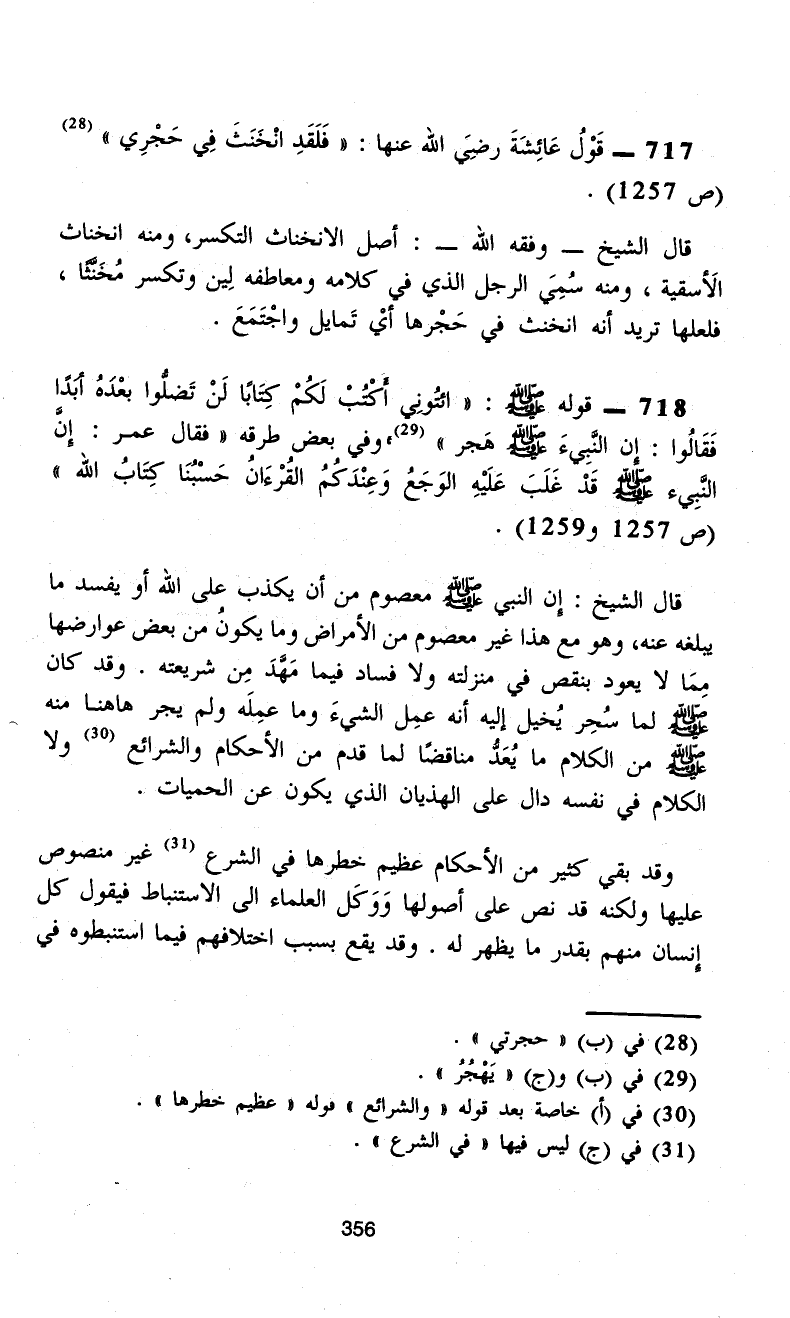 717 ــ قَوْلُ عَائِشَةَ رضِيَ الله عنها : « فَلَقَدِ انْخَنَثَ فِي حَجْرِي » (28)
(ص 1257) .
قال الشيخ ــ وفقه الله ــ : أصل الانخناث التكسر، ومنه انخناث
الَأسقية ، ومنه سُمِيَ الرجل الذي في كلامه ومعاطفه لِين وتكسر مُخَنَّثًا ،
فلعلها تريد أنه انخنث في حَجْرها أيْ تَمايل واجْتَمَعَ .
718 ــ قوله ﷺ : « ائتُونِي أَكْتُبْ لَكُمْ كِتَابًا لَنْ تَضِلُّوا بعْدَهُ أبَدًا
فَقَالُوا : إن النَّبِيءَ ﷺ هَجر » (29)، وفي بعض طرقه « فقال عمر : إنَّ
النَّبِيء ﷺ قَدْ غَلَبَ عَلَيْهِ الوَجَعُ وَعِنْدَكُمُ القُرْءَانُ حَسْبُنَا كِتَابُ الله »
(ص 1257 و1259) .
قال الشيخ : إن النبي ﷺ معصوم من أن يكذب على الله أو يفسد ما
يبلغه عنه، وهو مع هذا غير معصوم من الأمراض وما يكونُ من بعض عوارضها
مِمَا لا يعود بنقص في منزلته ولا فساد فيما مَهَّدَ مِن شريعته . وقد كان
ﷺ لما سُحِر يُخيل إليه أنه عمِل الشيءَ وما عمِلَه ولم يجر هاهنا منه
ﷺ من الكلام ما يُعَدُّ مناقضًا لما قدم من الأحكام والشرائع (30) ولا
الكلام في نفسه دال على الهذيان الذي يكون عن الحميات .
وقد بقي كثير من الأحكام عظيم خطرها في الشرع (31) غير منصوص
عليها ولكنه قد نص على أصولها وَوَكَل العلماء الى الاستنباط فيقول كل
إنسان منهم بقدر ما يظهر له . وقد يقع بسبب اختلافهم فيما استنبطوه في
(28) في (ب) « حجرتي » .
(29) في (ب) و(ج) « يَهْجُرُ » .
(30) في (أ) خاصة بعد قوله « والشرائع » قوله « عظيم خطرها » .
(31) في (ج) ليس فيها « في الشرع » .
356